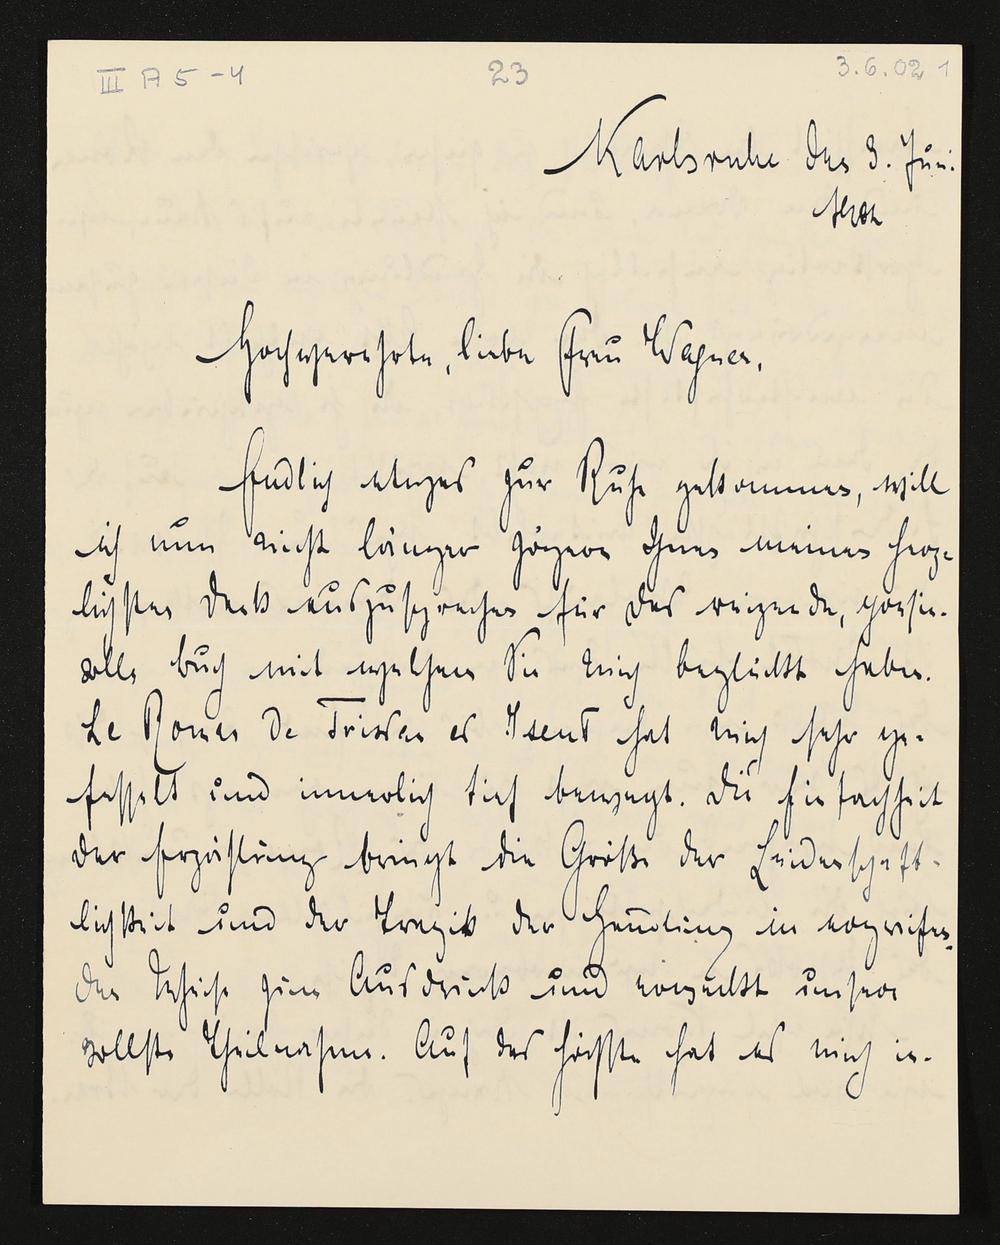 III A 5 - 4 23 3.6.02 1
Karlsruhe den 3. Juni.
1902
Hochverehrte, liebe Frau Wagner,
Endlich etwas zur Ruhe gekommen, will
ich nun nicht länger zögern Ihnen meinen herz-
lichsten Dank auszusprechen für das reizende, poesie-
volle Buch mit welchem Sie mich beglückt haben.
Le Roman de Tristan et Iseut hat mich sehr ge-
fesselt und innerlich tief bewegt. Die Einfachheit
der Erzählung bringt die Größe der Leidenschaft-
lichkeit und der Tragik der Handlung in ergreifen-
der Weise zum Ausdruck und erweckt unsere
vollste Theilnahme. Auf das höchste hat es mich in-